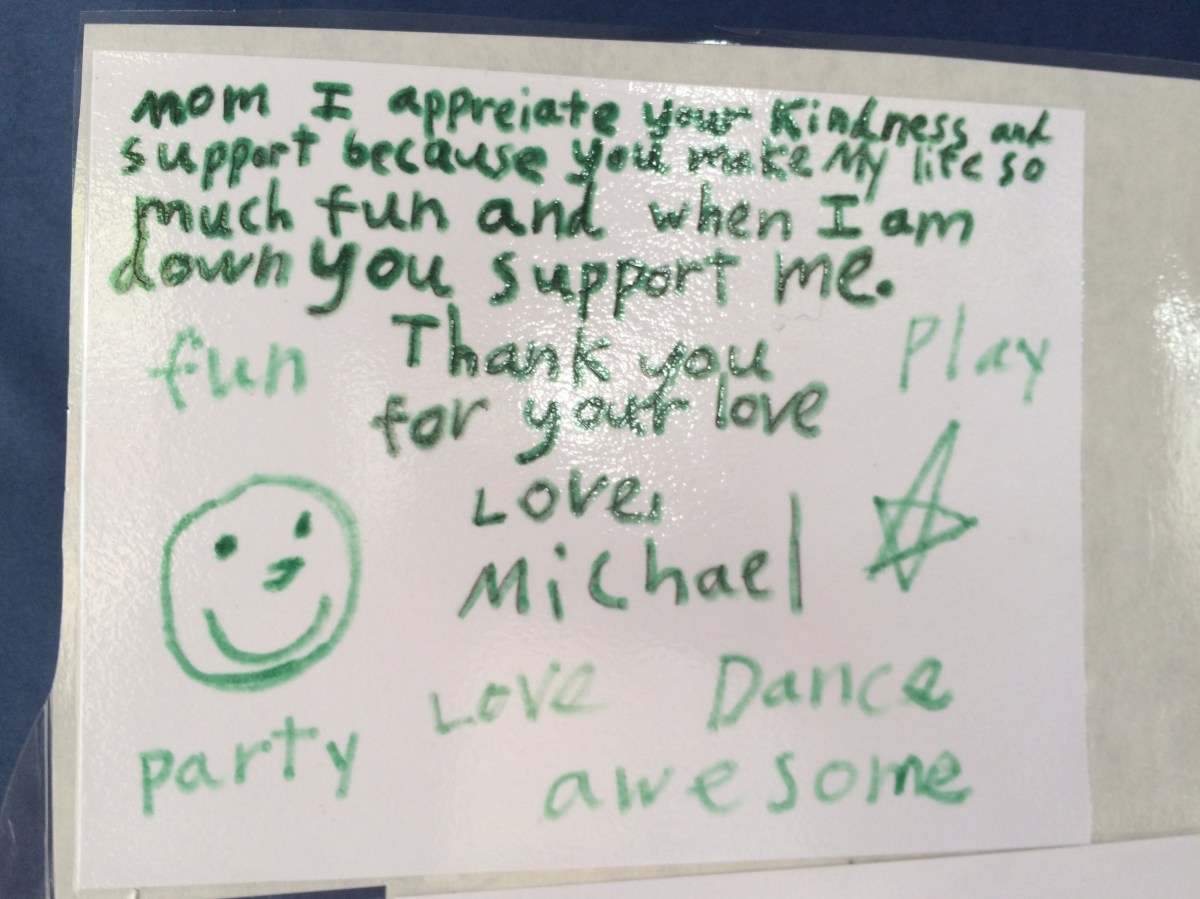 mom I appreiate your Kindness and
support because you make My life so
much fun and when I am
down you support me.
fun Thank you Play
for your love
Love,
Michael
Love Dance
party awesome